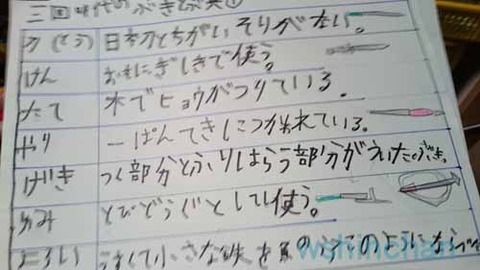 三国時代のぶきぶ具①
刀(とう) 日本刀とちがいそりがない。
けん おもにぎしきで使う。
たて 木でヒョウがつりている。
やり 一ぱんてきにつかれている。
げき つく部分とふりはらう部分がえたのぶき。
ゆみ とびどうぐとして使う。
よろい うすくて小さな鉄を魚のうろこのようにならべ